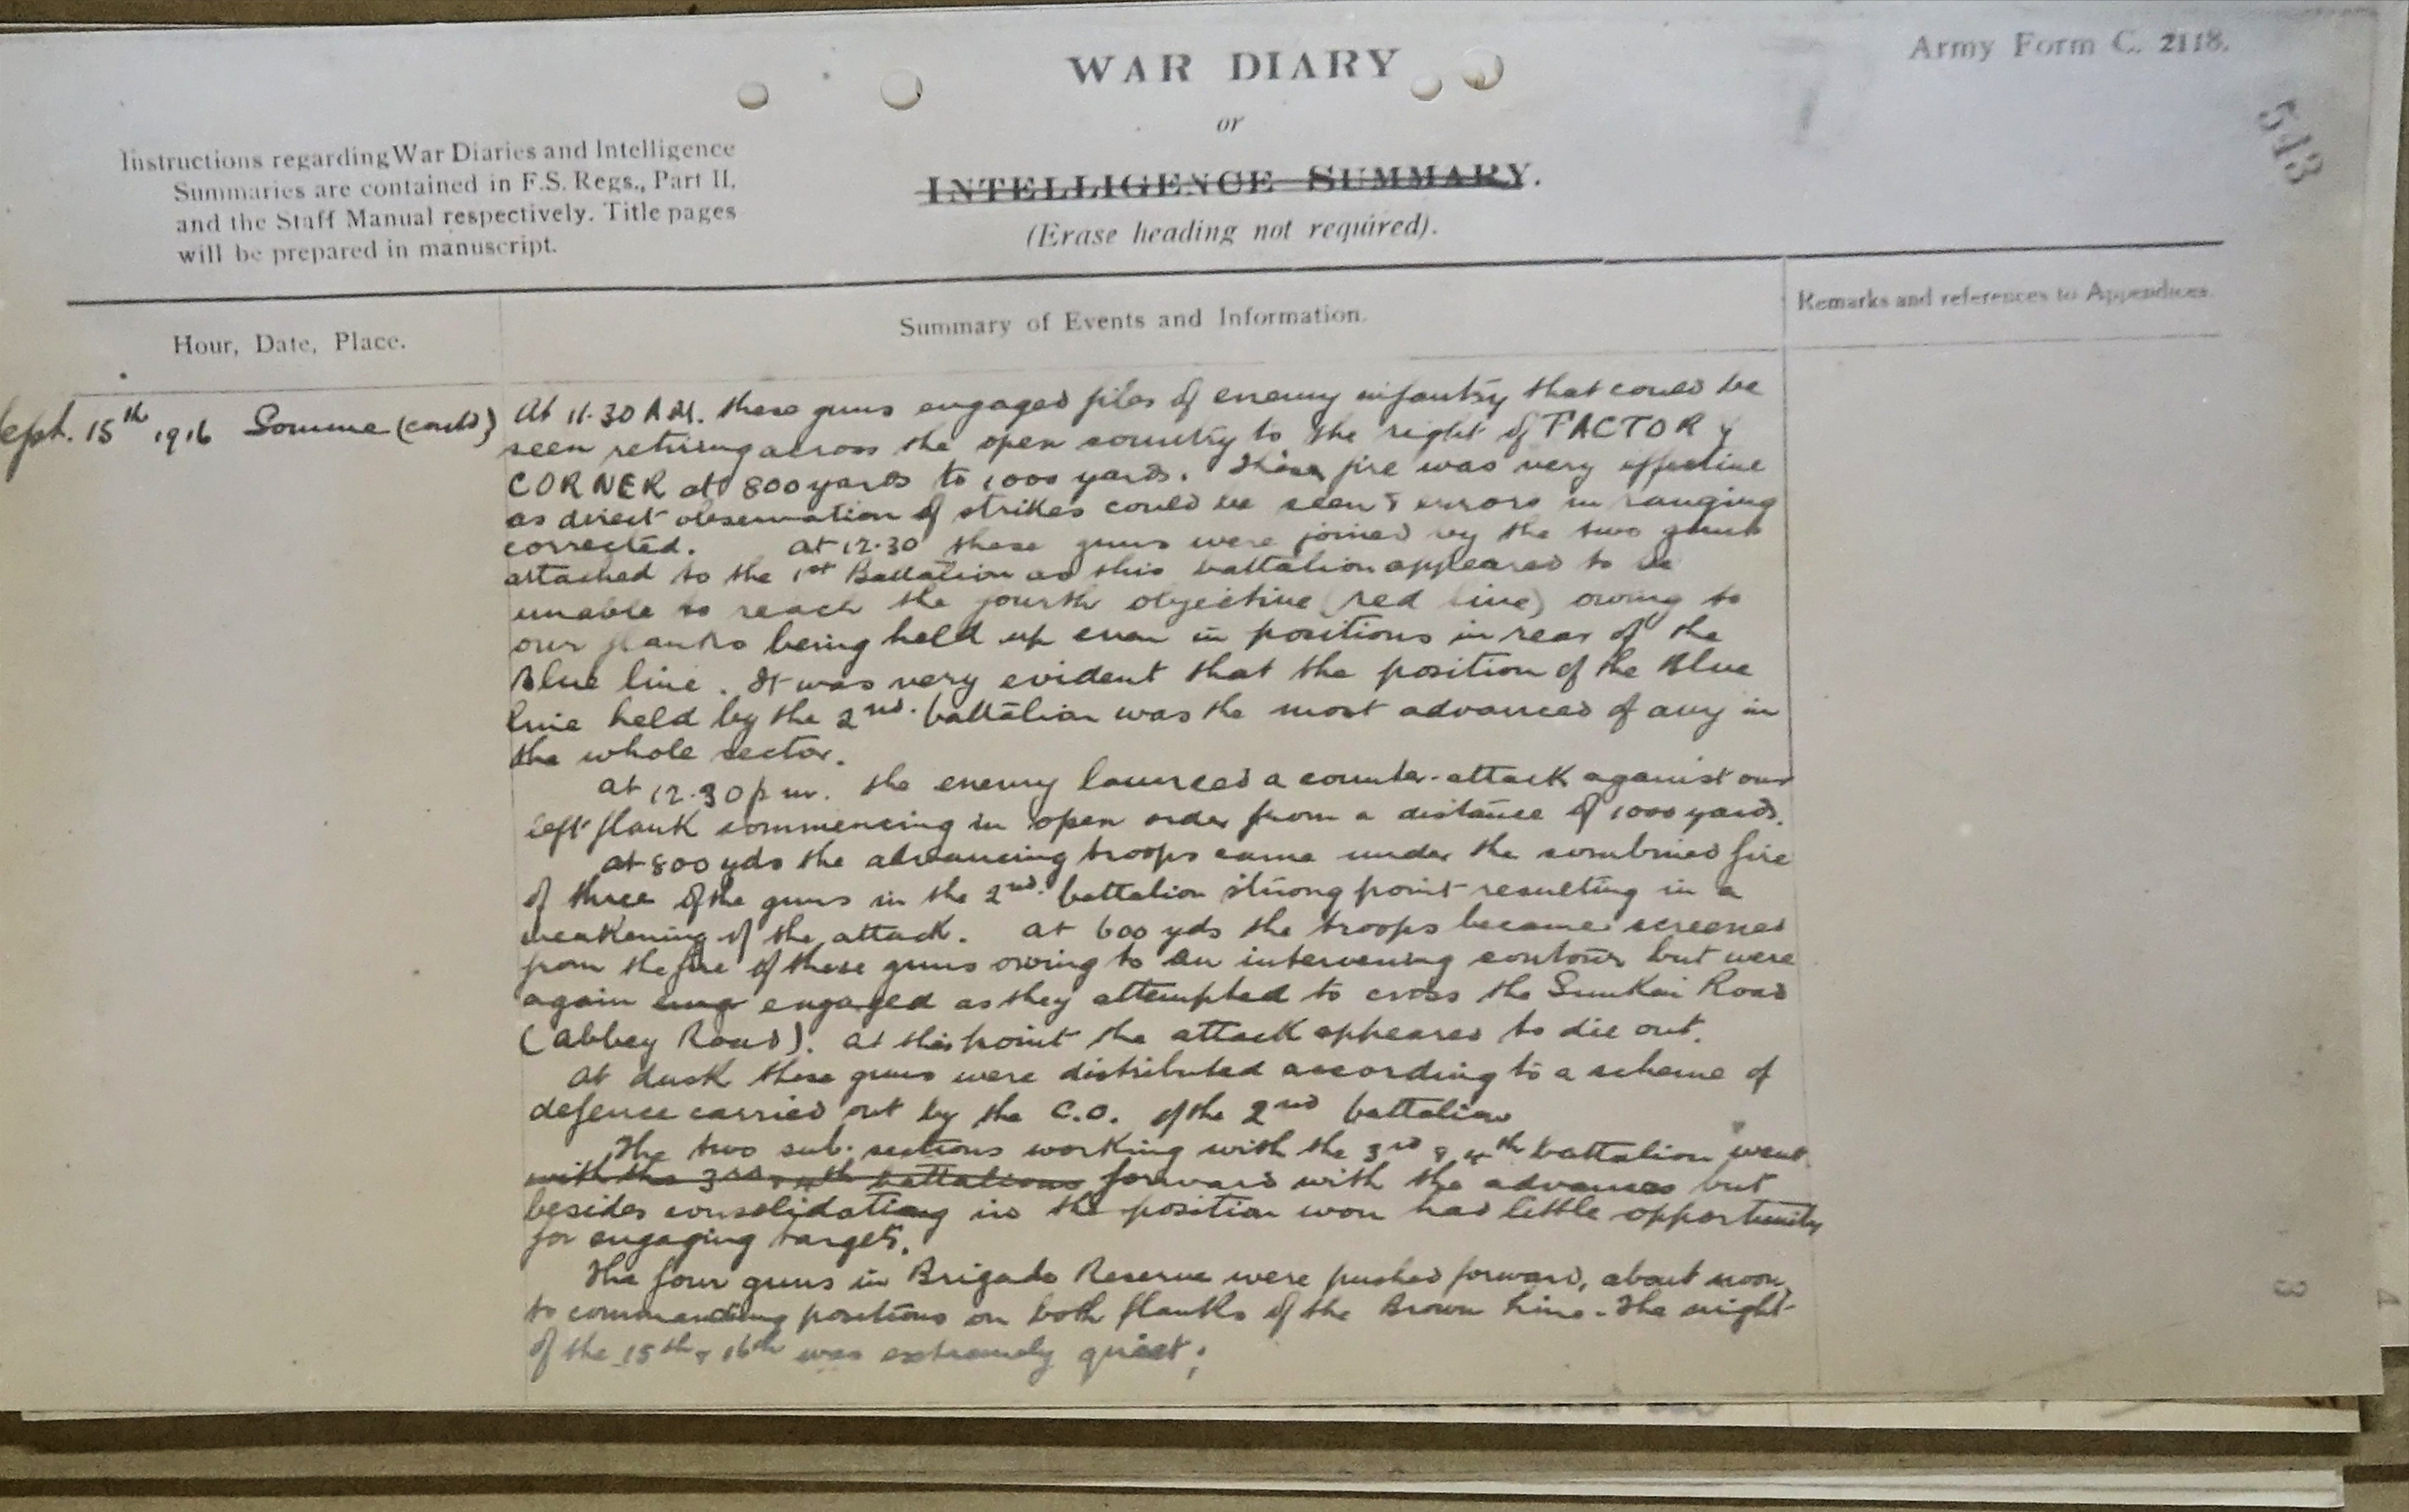 Army Form C. 2118.
WAR DIARY
or
INTELLIGENCE SUMMARY.
(Erase heading not required).
543
Instructions regarding War Diaries and Intelligence
Summaries are contained in F.S. Regs., Part II,
and the Staff Manual respectively. Title pages
will be prepared in manuscript.
Hour, Date, Place.
Summary of Events and Information.
Remarks and references to Appendices.
Sept. 15th 1916 Somme (contd)
At 11.30 A.M. these guns engaged files of enemy infantry that could be
seen retiring across the open country to the right of FACTORY
CORNER at 800 yards to 1000 yards. Their fire was very effective
as direct observation of strikes could be seen & errors in ranging
corrected. At 12.30 these guns were joined by the two guns
attached to the 1st Battalion as this battalion appeared to be
unable to reach the fourth objective (red line) owing to
our flanks being held up even in positions in rear of the
Blue line. It was very evident that the position of the Blue
line held by the 2nd. battalion was the most advanced of any in
the whole sector.
At 12.30 p.m. the enemy launced a counter-attack against our
left flank commencing in open order from a distance of 1000 yards.
At 800 yds the advancing troops came under the combined fire
of three of the guns in the 2nd. battalion strong point resulting in a
weakening of the attack. At 600 yds the troops became screened
from the fire of these guns owing to an intervening contour but were
again eng engaged as they attempted to cross the Sunken Road
(Abbey Road). At this point the attack appeared to die out.
At dusk these guns were distributed according to a scheme of
defence carried out by the C.O. of the 2nd battalion
The two sub-sections working with the 3rd & 4th battalion went
with the 3rd & 4th battalions forward with the advance but
besides consolidating in the position won had little opportunity
for engaging targets.
The four guns in Brigade Reserve were pushed forward, about noon,
to commanding positions on both flanks of the Brown Line. The night
of the 15th & 16th was extremely quiet;
3
4